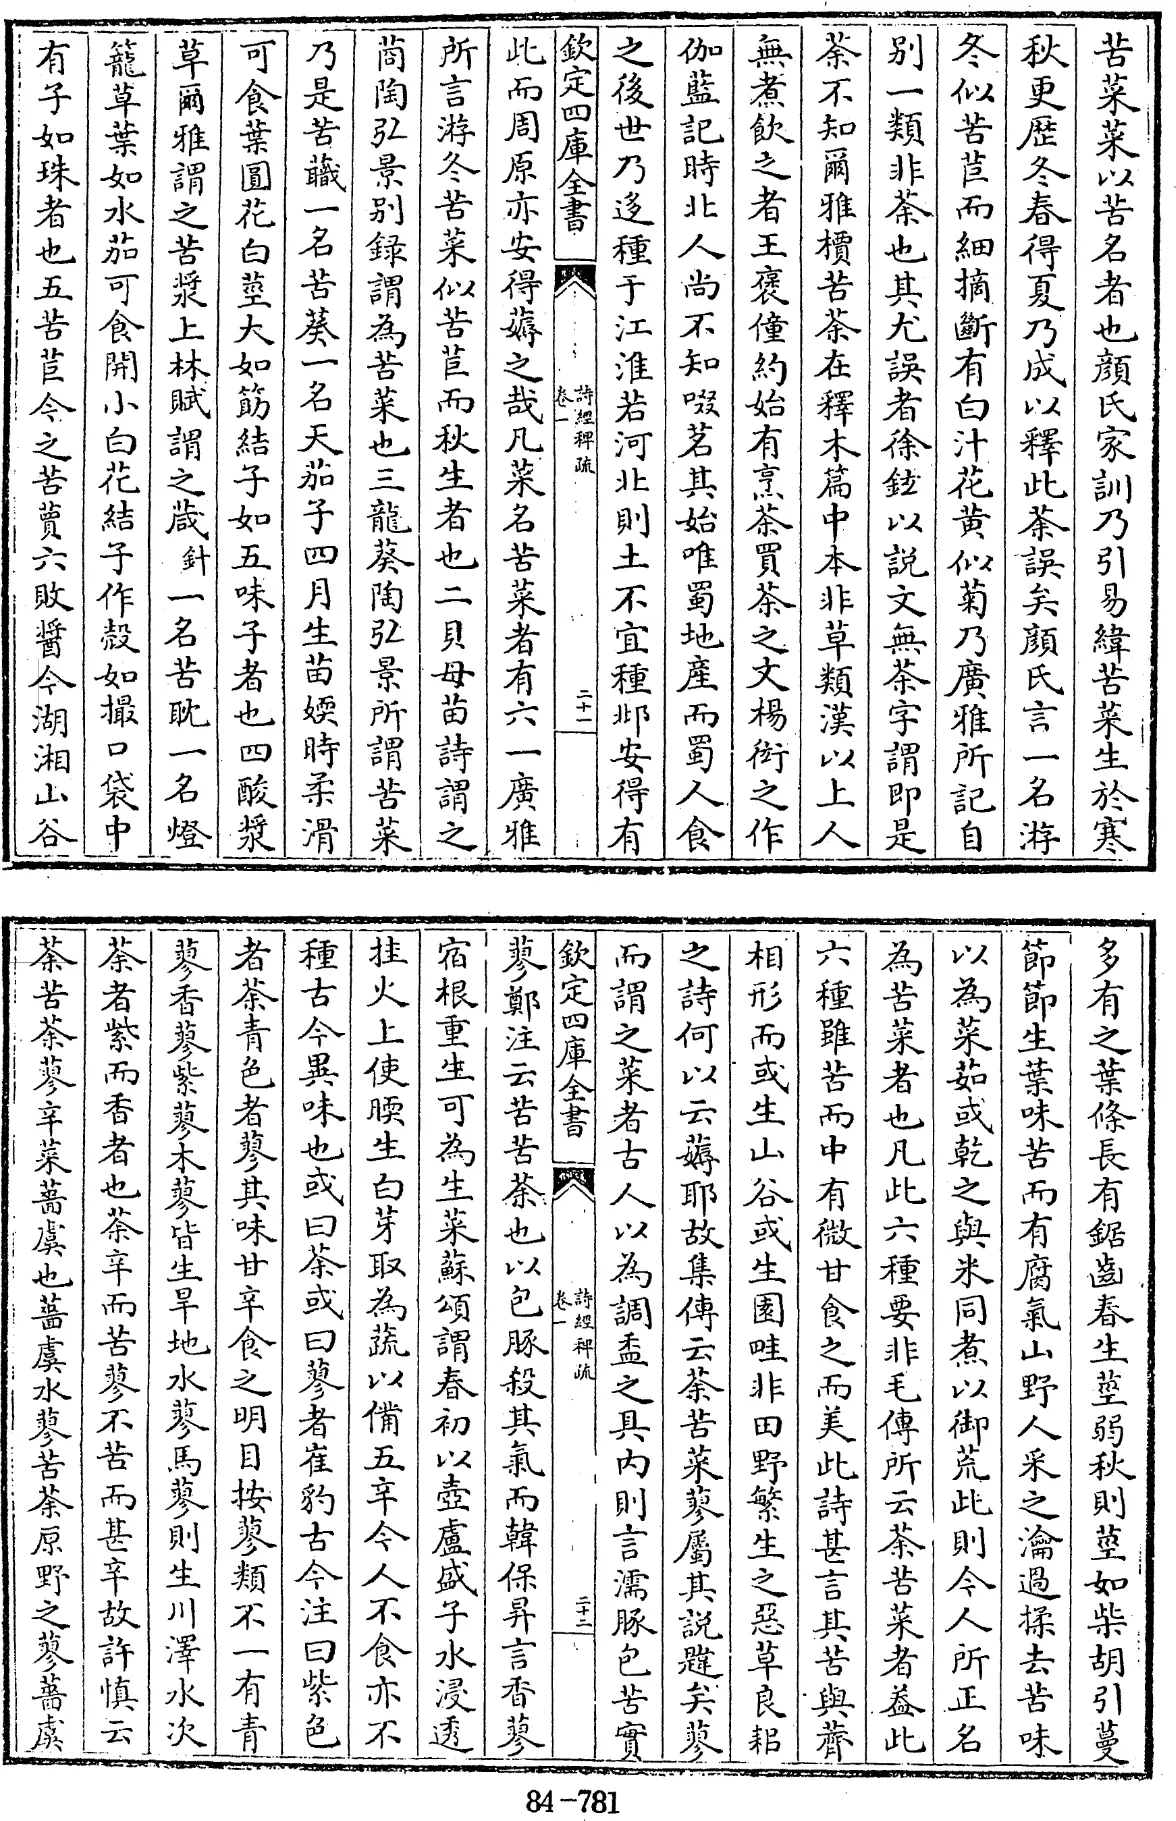 苦菜菜以苦名者也顔氏家訓乃引易緯苦菜生於寒
秋更歴冬春得夏乃成以釋此荼誤矣顔氏言一名游
冬似苦苣而細摘斷有白汁花黄似菊乃廣雅所記自
别一類非荼也其尤誤者徐鉉以説文無茶字謂即是
荼不知爾雅檟苦荼在釋木篇中本非草類漢以上人
無煮飲之者王褒僮約始有烹荼買荼之文楊衒之作
伽藍記時北人尚不知啜茗其始唯蜀地産而蜀人食
之後世乃迻種于江淮若河北則土不宜種邶安得有
欽定四庫全書
詩經稗疏
卷一
二十一
此而周原亦安得薅之哉凡菜名苦菜者有六一廣雅
所言游冬苦菜似苦苣而秋生者也二貝母苗詩謂之
莔陶弘景别録謂為苦菜也三龍葵陶弘景所謂苦菜
乃是苦蘵一名苦葵一名天茄子四月生苗媆時柔滑
可食葉圓花白莖大如筯結子如五味子者也四酸漿
草爾雅謂之苦漿上林賦謂之葴針一名苦耽一名燈
籠草葉如水茄可食開小白花結子作殻如撮口袋中
有子如珠者也五苦苣今之苦蕒六敗醬今湖湘山谷
多有之葉條長有鋸齒春生莖弱秋則莖如柴胡引蔓
節節生葉味苦而有腐氣山野人采之瀹過揉去苦味
以為菜茹或乾之與米同煮以御荒此則今人所正名
為苦菜者也凡此六種要非毛傳所云荼苦菜者葢此
六種雖苦而中有微甘食之而美此詩甚言其苦與薺
相形而或生山谷或生園畦非田野繁生之惡草良耜
之詩何以云薅耶故集傳云荼苦菜蓼屬其説韙矣蓼
而謂之菜者古人以為調盉之具内則言濡豚包苦實
欽定四庫全書
詩經稗疏
卷一
二十二
蓼鄭注云苦苦荼也以包豚殺其氣而韓保昇言香蓼
宿根重生可為生菜蘇頌謂春初以壺盧盛子水浸透
挂火上使暎生白芽取為蔬以備五辛今人不食亦不
種古今異味也或曰荼或曰蓼者崔豹古今注曰紫色
者荼青色者蓼其味甘辛食之明目按蓼類不一有青
蓼香蓼紫蓼木蓼皆生旱地水蓼馬蓼則生川澤水次
荼者紫而香者也荼辛而苦蓼不苦而甚辛故許慎云
荼苦荼蓼辛菜薔虞也薔虞水蓼苦荼原野之蓼薔虞
84-781